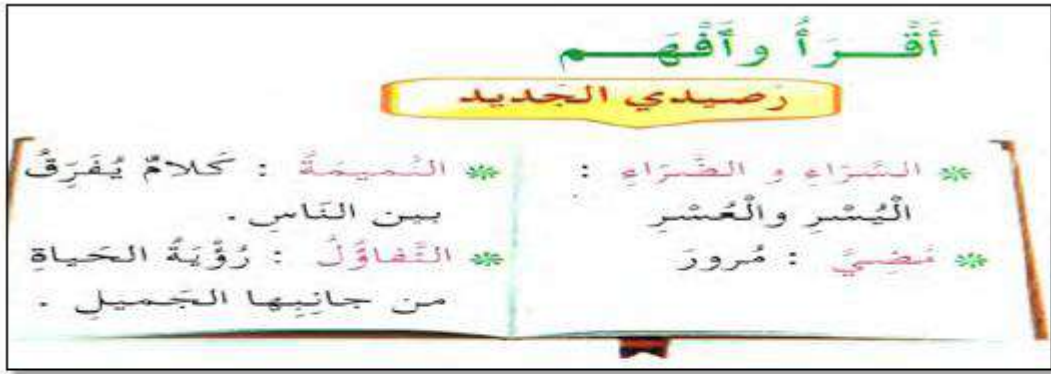 أَقْـرَأُ وأَفْهَـم
رَصيدي الجَديد
* السَّرَاءِ و الضَّرَاءِ :
الْيُسْرِ والْعُسْرِ
* مُضِيَّ : مُرورَ
* النَّميمَةُ : كَلامٌ يُفَرِقُ
بين النَاسِ .
* التَّفاؤُلُ : رُؤْيَةُ الحَياةِ
من جانِبِها الجَميلِ .